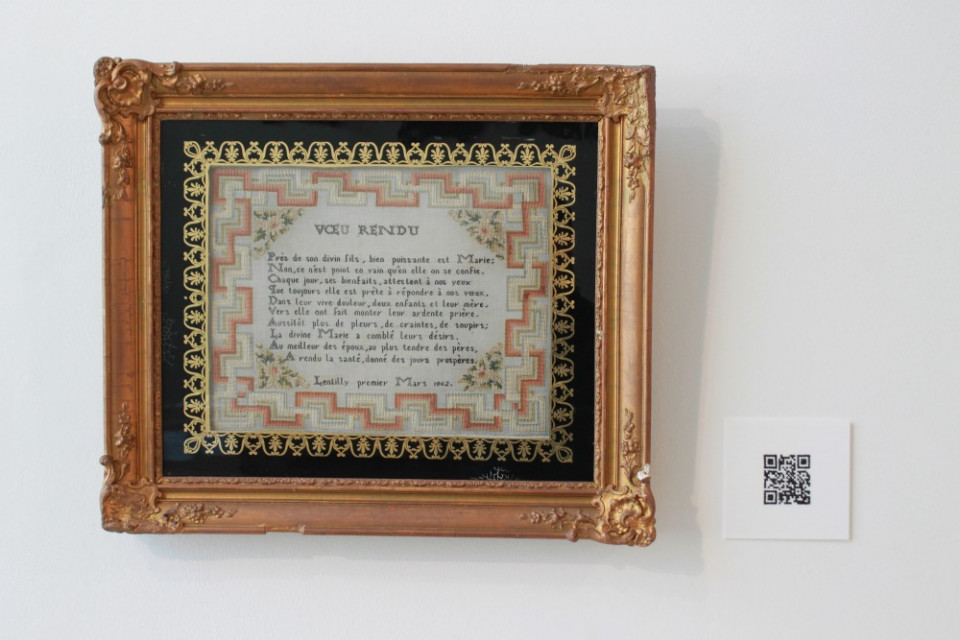 VŒU RENDU
Près de son divin fils, bien puissante est Marie;
Non, ce n'est point en vain qu'en elle on se confie.
Chaque jour, ses bienfaits, attestent à nos yeux
Que toujours elle est prête à répondre à nos vœux.
Dans leur vive douleur, deux enfants et leur mère.
Vers elle ont fait monter leur ardente prière.
Aussitôt plus de pleurs, de craintes, de soupirs;
La divine Marie a comblé leurs désirs.
Au meilleur des époux, au plus tendre des pères,
A rendu la santé, donné des jours prospères.
Lentilly premier Mars 1862.